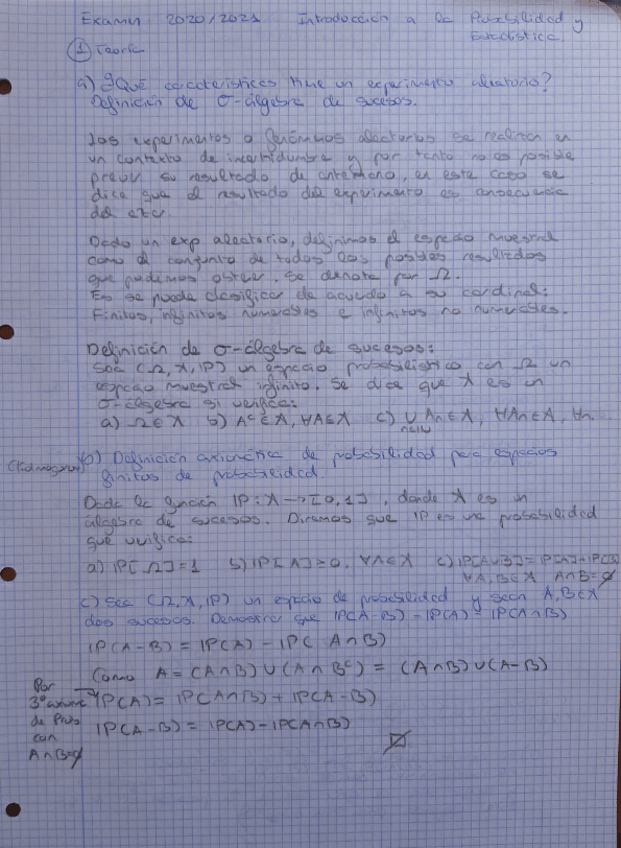 Examen 2020/2021 Introducción a la Probabilidad y
Estadística
① Teoría
a) ¿Qué características tiene un experimento aleatorio?
Definición de σ-álgebra de sucesos.
Los experimentos o fenómenos aleatorios se realizan en
un contexto de incertidumbre y por tanto no es posible
prever su resultado de antemano, en este caso se
dice que el resultado del experimento es consecuencia
del azar.
Dado un exp aleatorio, definimos el espacio muestral
como el conjunto de todos los posibles resultados
que podemos obtener. Se denota por Ω.
Es se puede clasificar de acuerdo a su cardinal:
Finitos, infinitos numerables e infinitos no numerables.
Definición de σ-álgebra de sucesos:
Sea (Ω, A, IP) un espacio probabilístico con Ω un
espacio muestral infinito. Se dice que A es un
σ-álgebra si verifica:
a) Ω ∈ A b) Aᶜ ∈ A, ∀A ∈ A c) ∪ An ∈ A, ∀An ∈ A, ∀n
n∈IN
(Kolmogorov) b) Definición axiomática de probabilidad para espacios
finitos de probabilidad.
Dada la función IP: A → [0,1], donde A es un
álgebra de sucesos. Diremos que IP es una probabilidad
que verifica:
a) IP[Ω]=1 b) IP[A] ≥ 0, ∀A ∈ A c) IP[A∪B] = IP[A]+IP[B]
∀A, B ∈ A A∩B=∅
c) Sea (Ω, A, IP) un espacio de probabilidad y sean A, B ∈ A
dos sucesos. Demostrar que IP(A-B) = IP(A) - IP(A∩B)
IP(A-B) = IP(A) - IP(A∩B)
Como A = (A∩B) ∪ (A∩Bᶜ) = (A∩B) ∪ (A-B)
Por
3º axioma → IP(A) = IP(A∩B) + IP(A-B)
de Prob
con IP(A-B) = IP(A) - IP(A∩B)
A∩B=∅